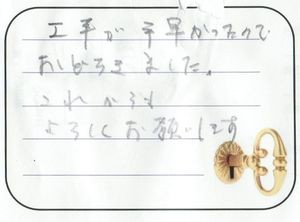 工事が手早かったので
おどろきました。
これからも
よろしくお願いします